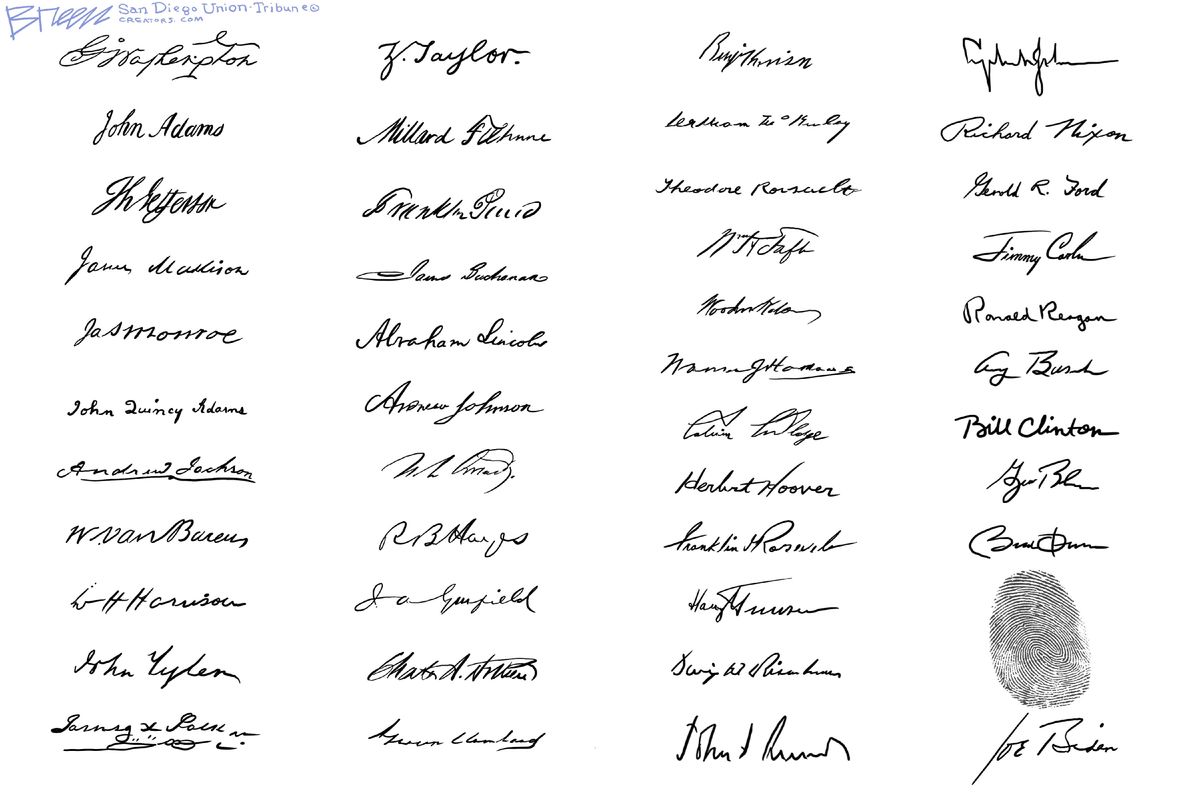 Breen San Diego Union-Tribune©
CREATORS.COM
G Washington
John Adams
Th Jefferson
James Madison
Jas Monroe
John Quincy Adams
Andrew Jackson
W. H. Harrison
John Tyler
James K Polk
Z. Taylor.
Millard Fillmore
Franklin Pierce
James Buchanan
Abraham Lincoln
Andrew Johnson
R B Hayes
J A Garfield
Chester A. Arthur
Grover Cleveland
Benj Harrison
William McKinley
Theodore Roosevelt
Wm H Taft
Woodrow Wilson
Warren G Harding
Calvin Coolidge
Herbert Hoover
Franklin D Roosevelt
Harry Truman
Dwight D Eisenhower
John F Kennedy
Lyndon B Johnson
Richard Nixon
Gerald R. Ford
Jimmy Carter
Ronald Reagan
G Bush
Bill Clinton
G Bush
Barack Obama
Joe Biden